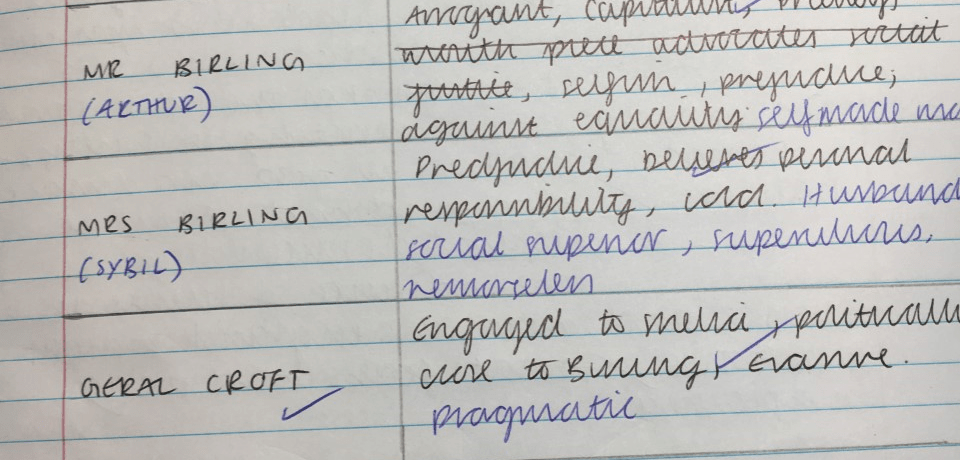 Arrogant, capitalist,
MR BIRLING
(ARTHUR)
mouth piece advocates social
justice, selfish, prejudice,
against equality; self made
MRS BIRLING
(SYBIL)
Predjudice, believes personal
responsibility, cold. Husband
social superior, supercilious,
remorseless
GERAL CROFT
Engaged to Sheila, politically
close to Birling, Evasive.
pragmatic